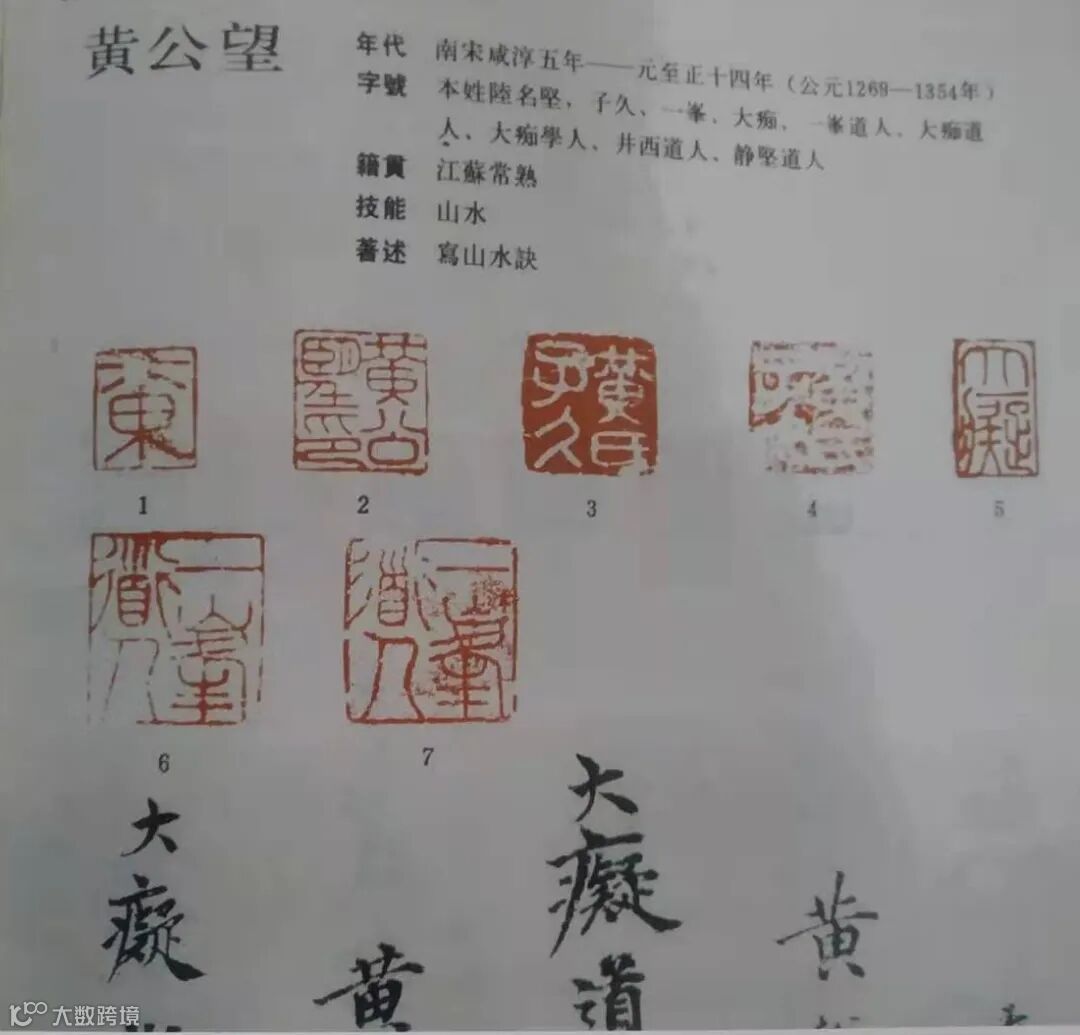 黄公望
年代 南宋咸淳五年——元至正十四年（公元1269—1354年）
字號 本姓陸名堅，子久、一峯、大痴、一峯道人、大痴道
人、大痴學人、井西道人、静堅道人
籍貫 江蘇常熟
技能 山水
著述 寫山水訣
黄公望印
黄氏子久
大癡
1 2 3 4 5
一峯道人
一峯道人
6 7
大癡
黄
大癡道
黄
大数跨境